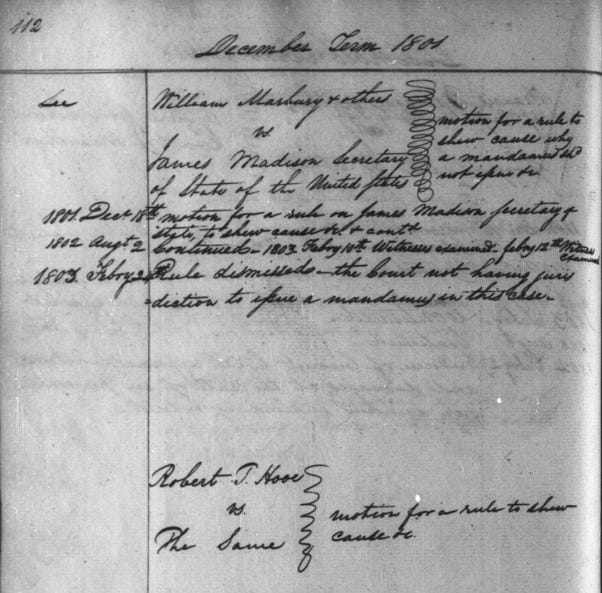 112
December Term 1801
Lee
William Marbury & others
vs.
James Madison Secretary
of State of the United States
motion for a rule to
shew cause why
a mandamus shd
not ifsue &c.
1801. Decr 18th motion for a rule on James Madison secretary &
State, to shew cause &c & contd
1802 Augt 2 Continued - 1803 Febry 10th Witnesses examined - febry 12th Witness
Examined
1803. Febry 24th Rule dismissed - the Court not having juris
=diction to ifsue a mandamus in this case -
Robert T. Hooe
vs.
The Same
motion for a rule to shew
cause &c.